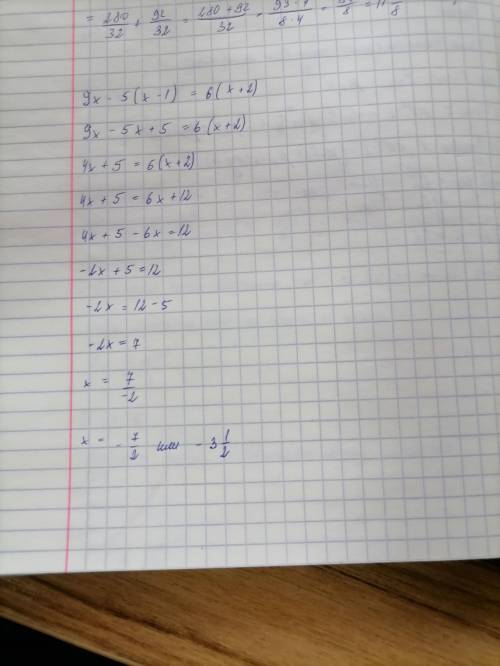 = 280/32 + 92/32 = 280+92/32 = 93·4/8·4 = 93/8 = 11 5/8
9x - 5(x-1) = 6(x+2)
9x - 5x + 5 = 6(x+2)
4x + 5 = 6(x+2)
4x + 5 = 6x + 12
4x + 5 - 6x = 12
-2x + 5 = 12
-2x = 12 - 5
-2x = 7
x = 7/-2
x = - 7/2 или - 3 1/2